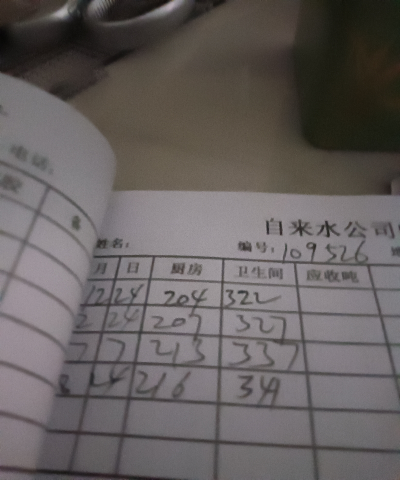 电话:
自来水公司
姓名: 编号: 109526
月 日 厨房 卫生间 应收吨
12 24 204 322
2 24 207 327
7 7 213 337
24 216